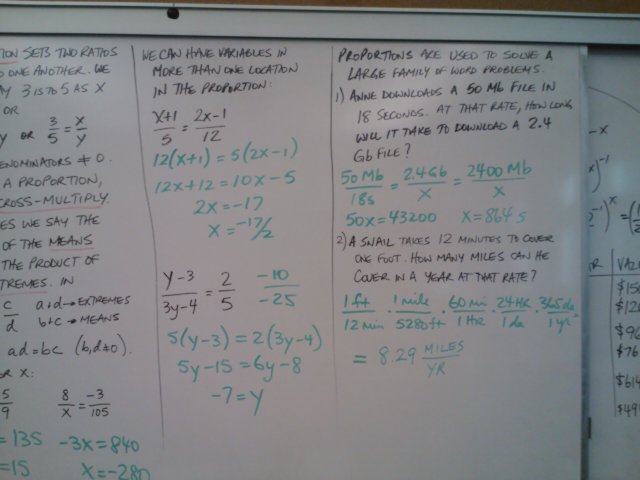 ION SETS TWO RATIOS
O ONE ANOTHER. WE
AY 3 IS TO 5 AS X
OR
Y OR 3/5 = X/Y
ENOMINATORS ≠ 0.
A PROPORTION,
CROSS-MULTIPLY.
ES WE SAY THE
OF THE MEANS
THE PRODUCT OF
TREMES. IN
c/d a+d → EXTREMES
b+c → MEANS
ad=bc (b,d≠0).
OR X:
5/9 8/X = -3/105
= 135 -3X = 840
= 15 X = -280
WE CAN HAVE VARIABLES IN
MORE THAN ONE LOCATION
IN THE PROPORTION:
X+1/5 = 2X-1/12
12(X+1) = 5(2X-1)
12X+12 = 10X-5
2X = -17
X = -17/2
Y-3/3Y-4 = 2/5 -10/-25
5(Y-3) = 2(3Y-4)
5Y-15 = 6Y-8
-7 = Y
PROPORTIONS ARE USED TO SOLVE A
LARGE FAMILY OF WORD PROBLEMS.
1) ANNE DOWNLOADS A 50 Mb FILE IN
18 SECONDS. AT THAT RATE, HOW LONG
WILL IT TAKE TO DOWNLOAD A 2.4
Gb FILE?
50 Mb/18s = 2.4 Gb/X = 2400 Mb/X
50X = 43200 X = 864 s
2) A SNAIL TAKES 12 MINUTES TO COVER
ONE FOOT. HOW MANY MILES CAN HE
COVER IN A YEAR AT THAT RATE?
1 ft/12 min · 1 mile/5280 ft · 60 min/1 HR · 24 HR/1 da · 365 da/1 yr =
= 8.29 MILES/YR
-X
)^-1
2^-1)^X = (1/2
R VALU
$150
$120
$96
$76
$614
$491